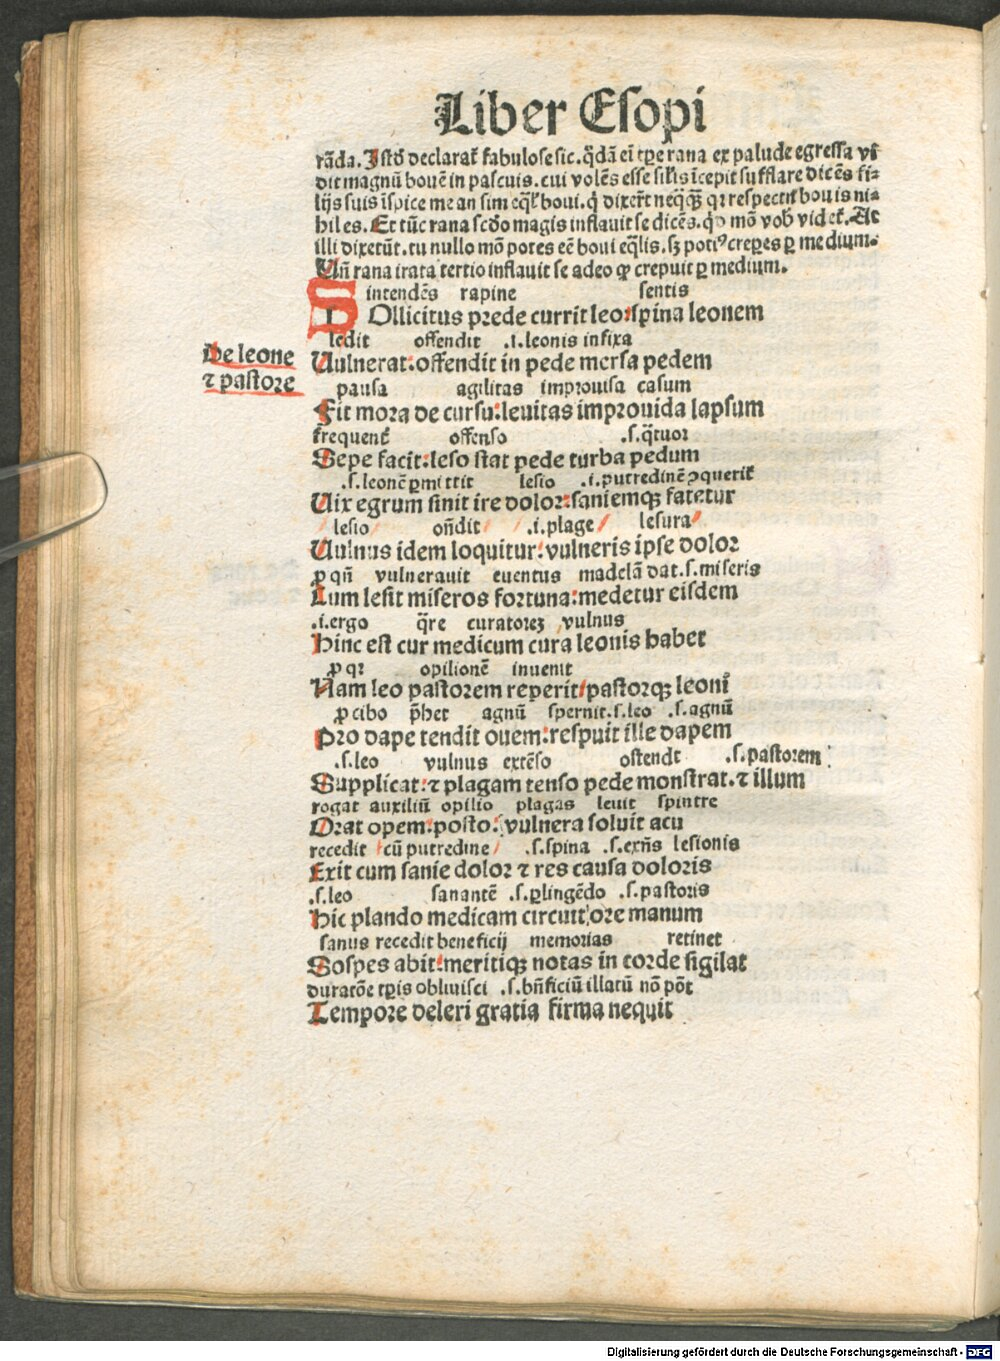 Liber Esopi
rāda. Istd̄ declarat̄ fabulose sic. q̄dā ei tp̄re rana ex palude egressa vi
dit magnū bouē in pascuis. cui volēs esse siĺis īcepit sufflare dicēs fi-
lijs suis īspice me an sim eq̄l̄ boui. q̇ dixer̄t neq̄q̄ꝫ qꝛ respectu bouis ni-
hil es. Et tūc rana scd̄o magis inflauit se dicēs. qͦ mō vob̄ videt̄. At
illi dixerūt. tu nullo mō potes eē boui eq̄lis. sꝫ potiꝰ crepes ꝑ medium.
Un̄ rana irata tertio inflauit se adeo ꝙ crepuit ꝑ medium.
intendēs rapine sentis
SOllicitus prede currit leo:spina leonem
ledit offendit .i. leonis infixa
De leone
Uulnerat:offendit in pede mersa pedem
ꞇ pastore
pausa agilitas improuisa casum
Fit mora de cursu:leuitas improuida lapsum
frequent̄ offenso .s. q̄tuor
Sepe facit:leso stat pede turba pedum
.s. leonē ꝑmittit lesio .i. putredinē ꝯquerit̄
Uix egrum sinit ire dolor:saniemqꝫ fatetur
lesio on̄dit .i. plage lesura
Uulnus idem loquitur: vulneris ipse dolor
ꝓ qn̄ vulnerauit euentus madelā dat .s. miseris
Cum lesit miseros fortuna:medetur eisdem
.i. ergo q̄re curatoreꝫ vulnus
Hinc est cur medicum cura leonis habet
ꝓ qꝛ opilionē inuenit
Nam leo pastorem reperit:pastorqꝫ leoni
ꝓ cibo p̄bet agnū spernit .s. leo .s. agnū
Pro dape tendit ouem:respuit ille dapem
.s. leo vulnus extēso ostendt .s. pastorem
Supplicat:ꞇ plagam tenso pede monstrat. ꞇ illum
rogat auxiliū opilio plagas leuit spintre
Orat opem:posto: vulnera soluit acu
recedit cū putredine .s. spina .s. exn̄s lesionis
Exit cum sanie dolor ꞇ res causa doloris
.s. leo sanantē .s. ꝑlingēdo .s. pastoris
Hic plando medicam circuit ore manum
sanus recedit beneficij memorias retinet
Sospes abit:meritiqꝫ notas in corde sigilat
duratōe tp̄is obliuisci .s. bn̄ficiū illatū nō pōt
Tempore deleri gratia firma nequit
Digitalisierung gefördert durch die Deutsche Forschungsgemeinschaft - DFG